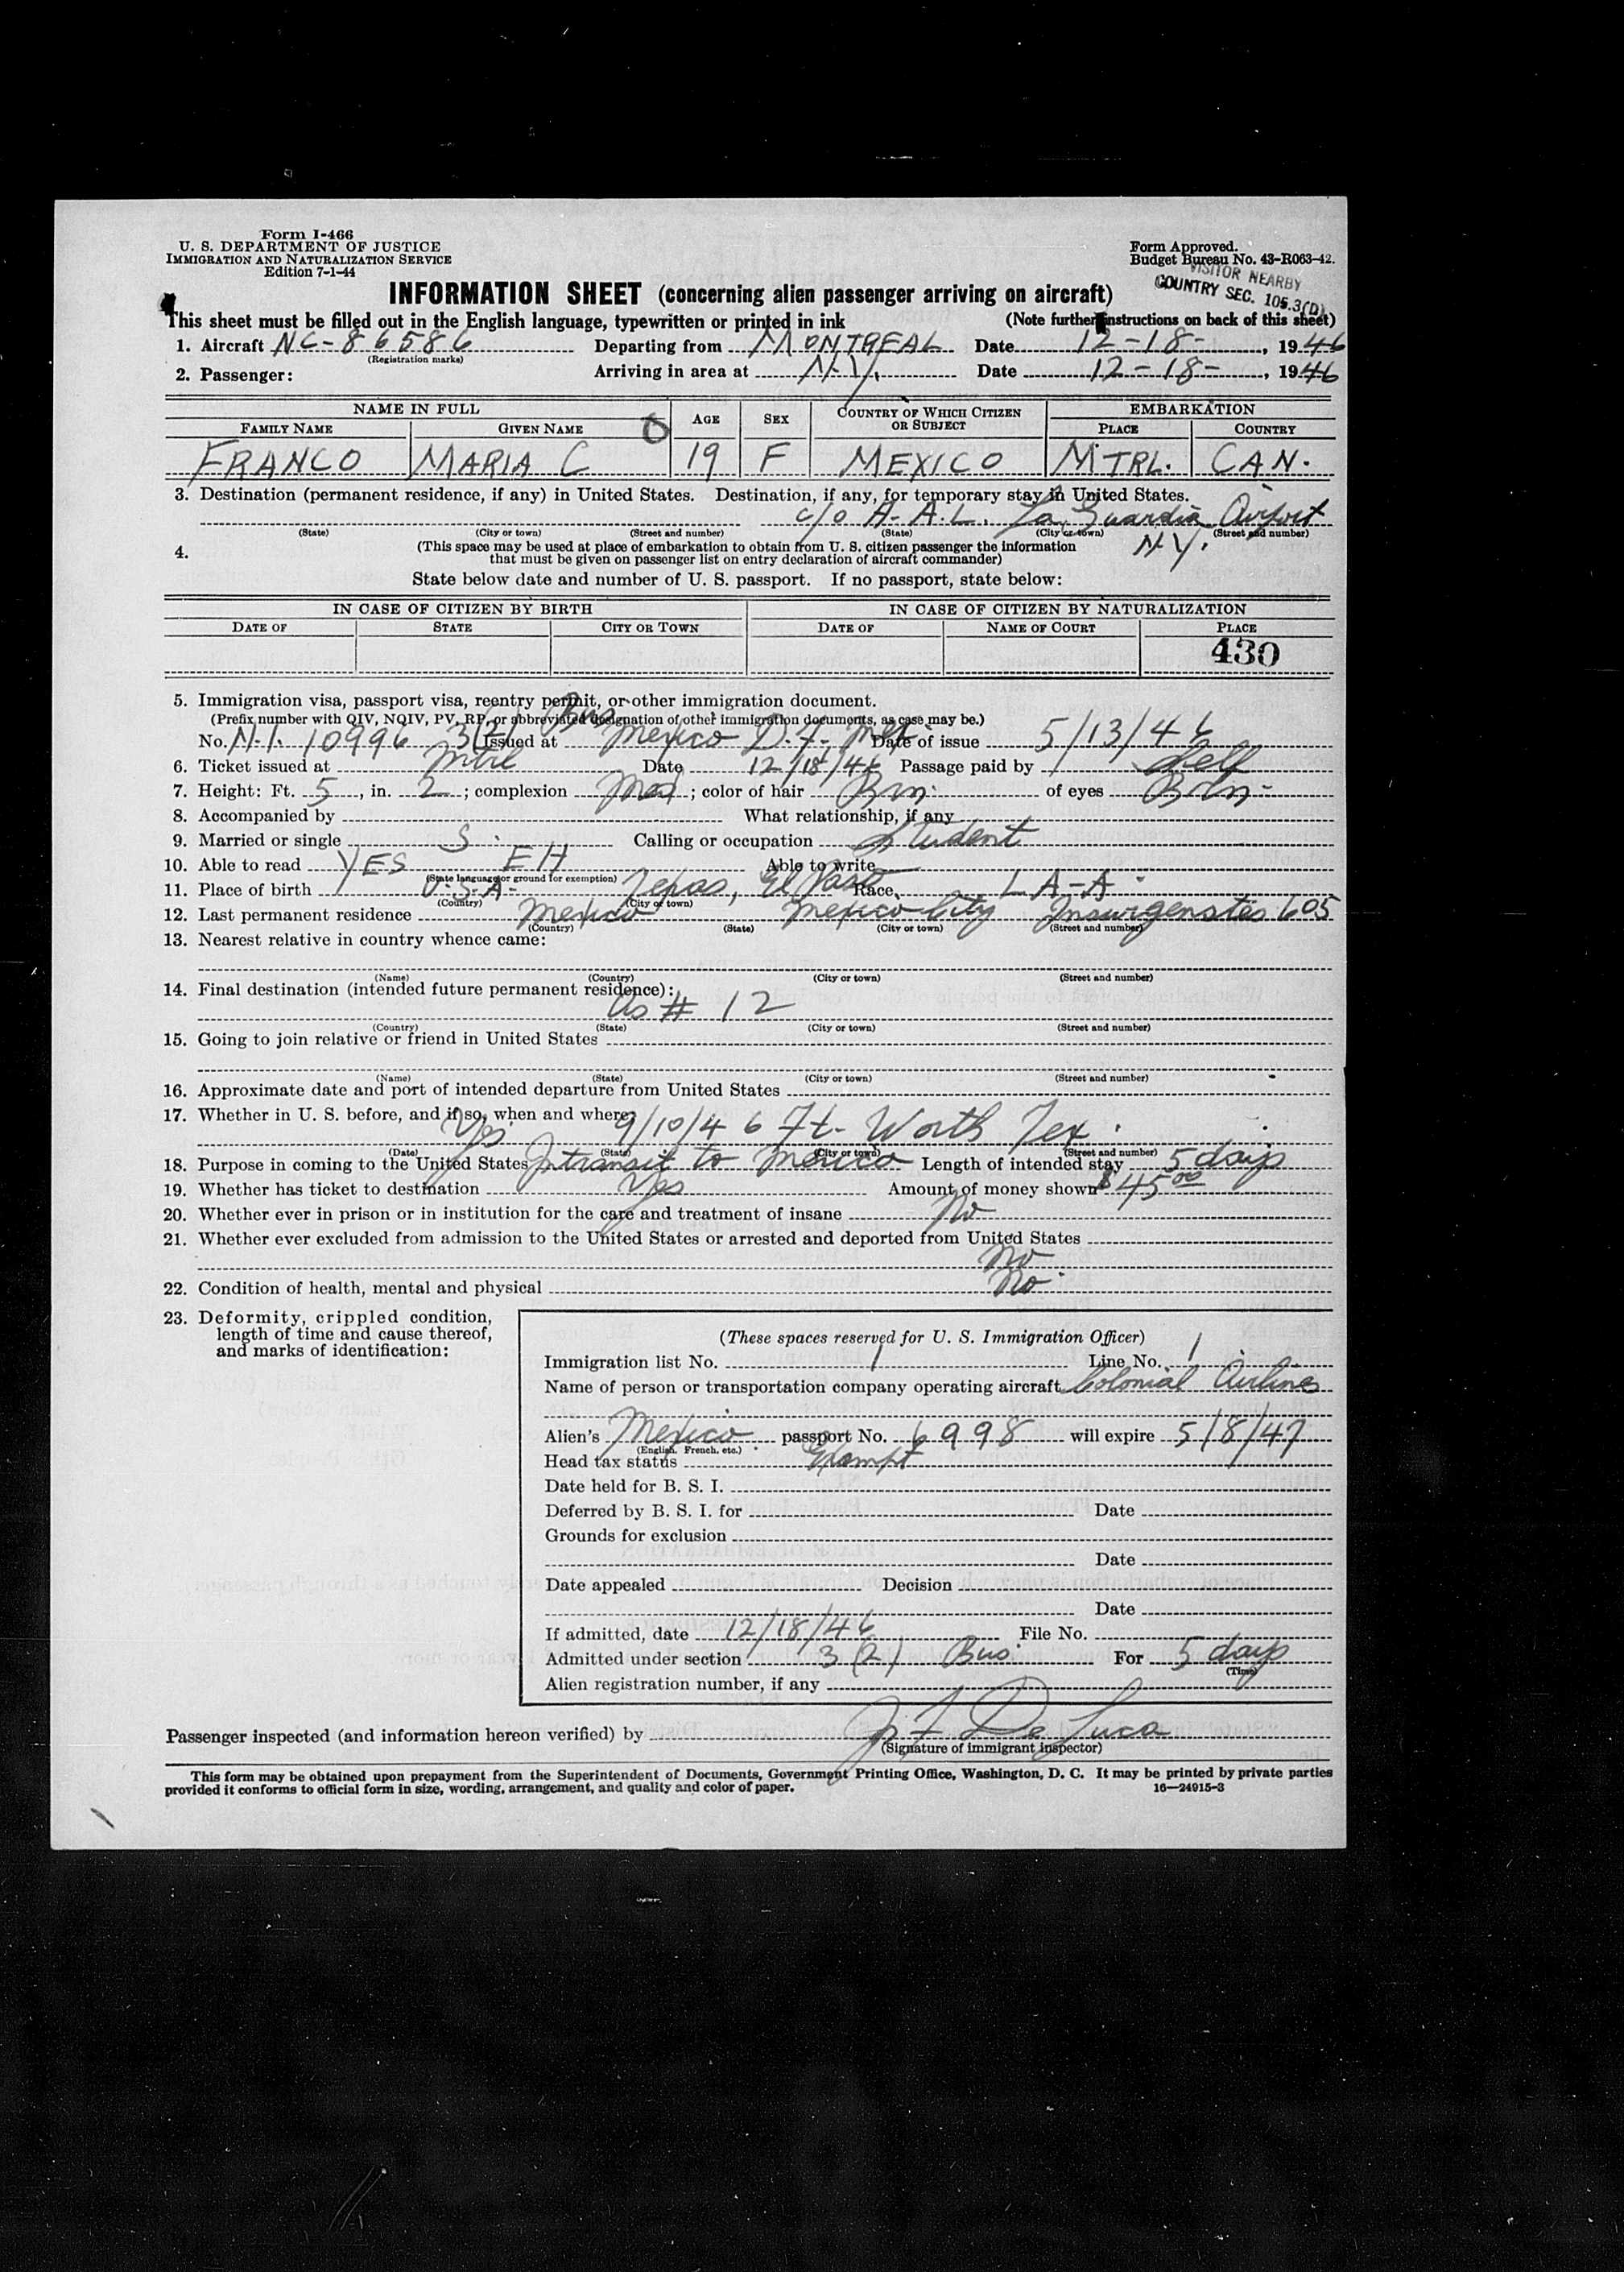 Form I-466
U. S. DEPARTMENT OF JUSTICE
IMMIGRATION AND NATURALIZATION SERVICE
Edition 7-1-44
Form Approved.
Budget Bureau No. 43-R063-42.
VISITOR NEARBY
COUNTRY SEC. 105.3(D)
INFORMATION SHEET (concerning alien passenger arriving on aircraft)
This sheet must be filled out in the English language, typewritten or printed in ink (Note further instructions on back of this sheet)
1. Aircraft NC-86586 Departing from MONTREAL Date 12-18-, 1946
(Registration marks)
2. Passenger: Arriving in area at N.Y. Date 12-18-, 1946
NAME IN FULL AGE SEX COUNTRY OF WHICH CITIZEN OR SUBJECT EMBARKATION
FAMILY NAME GIVEN NAME PLACE COUNTRY
FRANCO MARIA C 19 F MEXICO MTRL. CAN.
3. Destination (permanent residence, if any) in United States. Destination, if any, for temporary stay in United States.
c/o A.A.L. La Guardia Airport
(State) (City or town) (Street and number) (State) (City or town) (Street and number)
N.Y.
4. (This space may be used at place of embarkation to obtain from U. S. citizen passenger the information
that must be given on passenger list on entry declaration of aircraft commander)
State below date and number of U. S. passport. If no passport, state below:
IN CASE OF CITIZEN BY BIRTH IN CASE OF CITIZEN BY NATURALIZATION
DATE OF STATE CITY OR TOWN DATE OF NAME OF COURT PLACE
430
5. Immigration visa, passport visa, reentry permit, or other immigration document.
(Prefix number with QIV, NQIV, PV, RP, or abbreviated designation of other immigration documents, as case may be.)
No. 10996 3(2) Bus Issued at Mexico D.F. Mex Date of issue 5/13/46
6. Ticket issued at Mtrl Date 12/18/46 Passage paid by Self
7. Height: Ft. 5, in. 2; complexion Med; color of hair Brn. of eyes Brn-
8. Accompanied by What relationship, if any
9. Married or single S. Calling or occupation Student
10. Able to read YES EH Able to write
(State language or ground for exemption)
11. Place of birth U.S.A- Texas, El Paso Race LA-A
(Country) (City or town)
12. Last permanent residence Mexico Mexico City Insurgenstes 605
(Country) (State) (City or town) (Street and number)
13. Nearest relative in country whence came:
(Name) (Country) (City or town) (Street and number)
14. Final destination (intended future permanent residence):
As # 12
(Country) (State) (City or town) (Street and number)
15. Going to join relative or friend in United States
(Name) (State) (City or town) (Street and number)
16. Approximate date and port of intended departure from United States
17. Whether in U. S. before, and if so, when and where
Yes 9/10/46 Ft. Worth Tex.
(Date) (State) (City or town) (Street and number)
18. Purpose in coming to the United States Intransit to Mexico Length of intended stay 5 days
19. Whether has ticket to destination Yes Amount of money shown $45.00
20. Whether ever in prison or in institution for the care and treatment of insane No
21. Whether ever excluded from admission to the United States or arrested and deported from United States
No
22. Condition of health, mental and physical No.
23. Deformity, crippled condition,
length of time and cause thereof,
and marks of identification:
(These spaces reserved for U. S. Immigration Officer)
Immigration list No. 1 Line No. 1
Name of person or transportation company operating aircraft Colonial Airlines
Alien's Mexico passport No. 6998 will expire 5/8/47
(English, French, etc.)
Head tax status Exempt
Date held for B. S. I.
Deferred by B. S. I. for Date
Grounds for exclusion
Date
Date appealed Decision
Date
If admitted, date 12/18/46 File No.
Admitted under section 3(2) Bus. For 5 days
(Time)
Alien registration number, if any
Passenger inspected (and information hereon verified) by J. F. De Luca
(Signature of immigrant inspector)
This form may be obtained upon prepayment from the Superintendent of Documents, Government Printing Office, Washington, D. C. It may be printed by private parties
provided it conforms to official form in size, wording, arrangement, and quality and color of paper. 16—24915-3